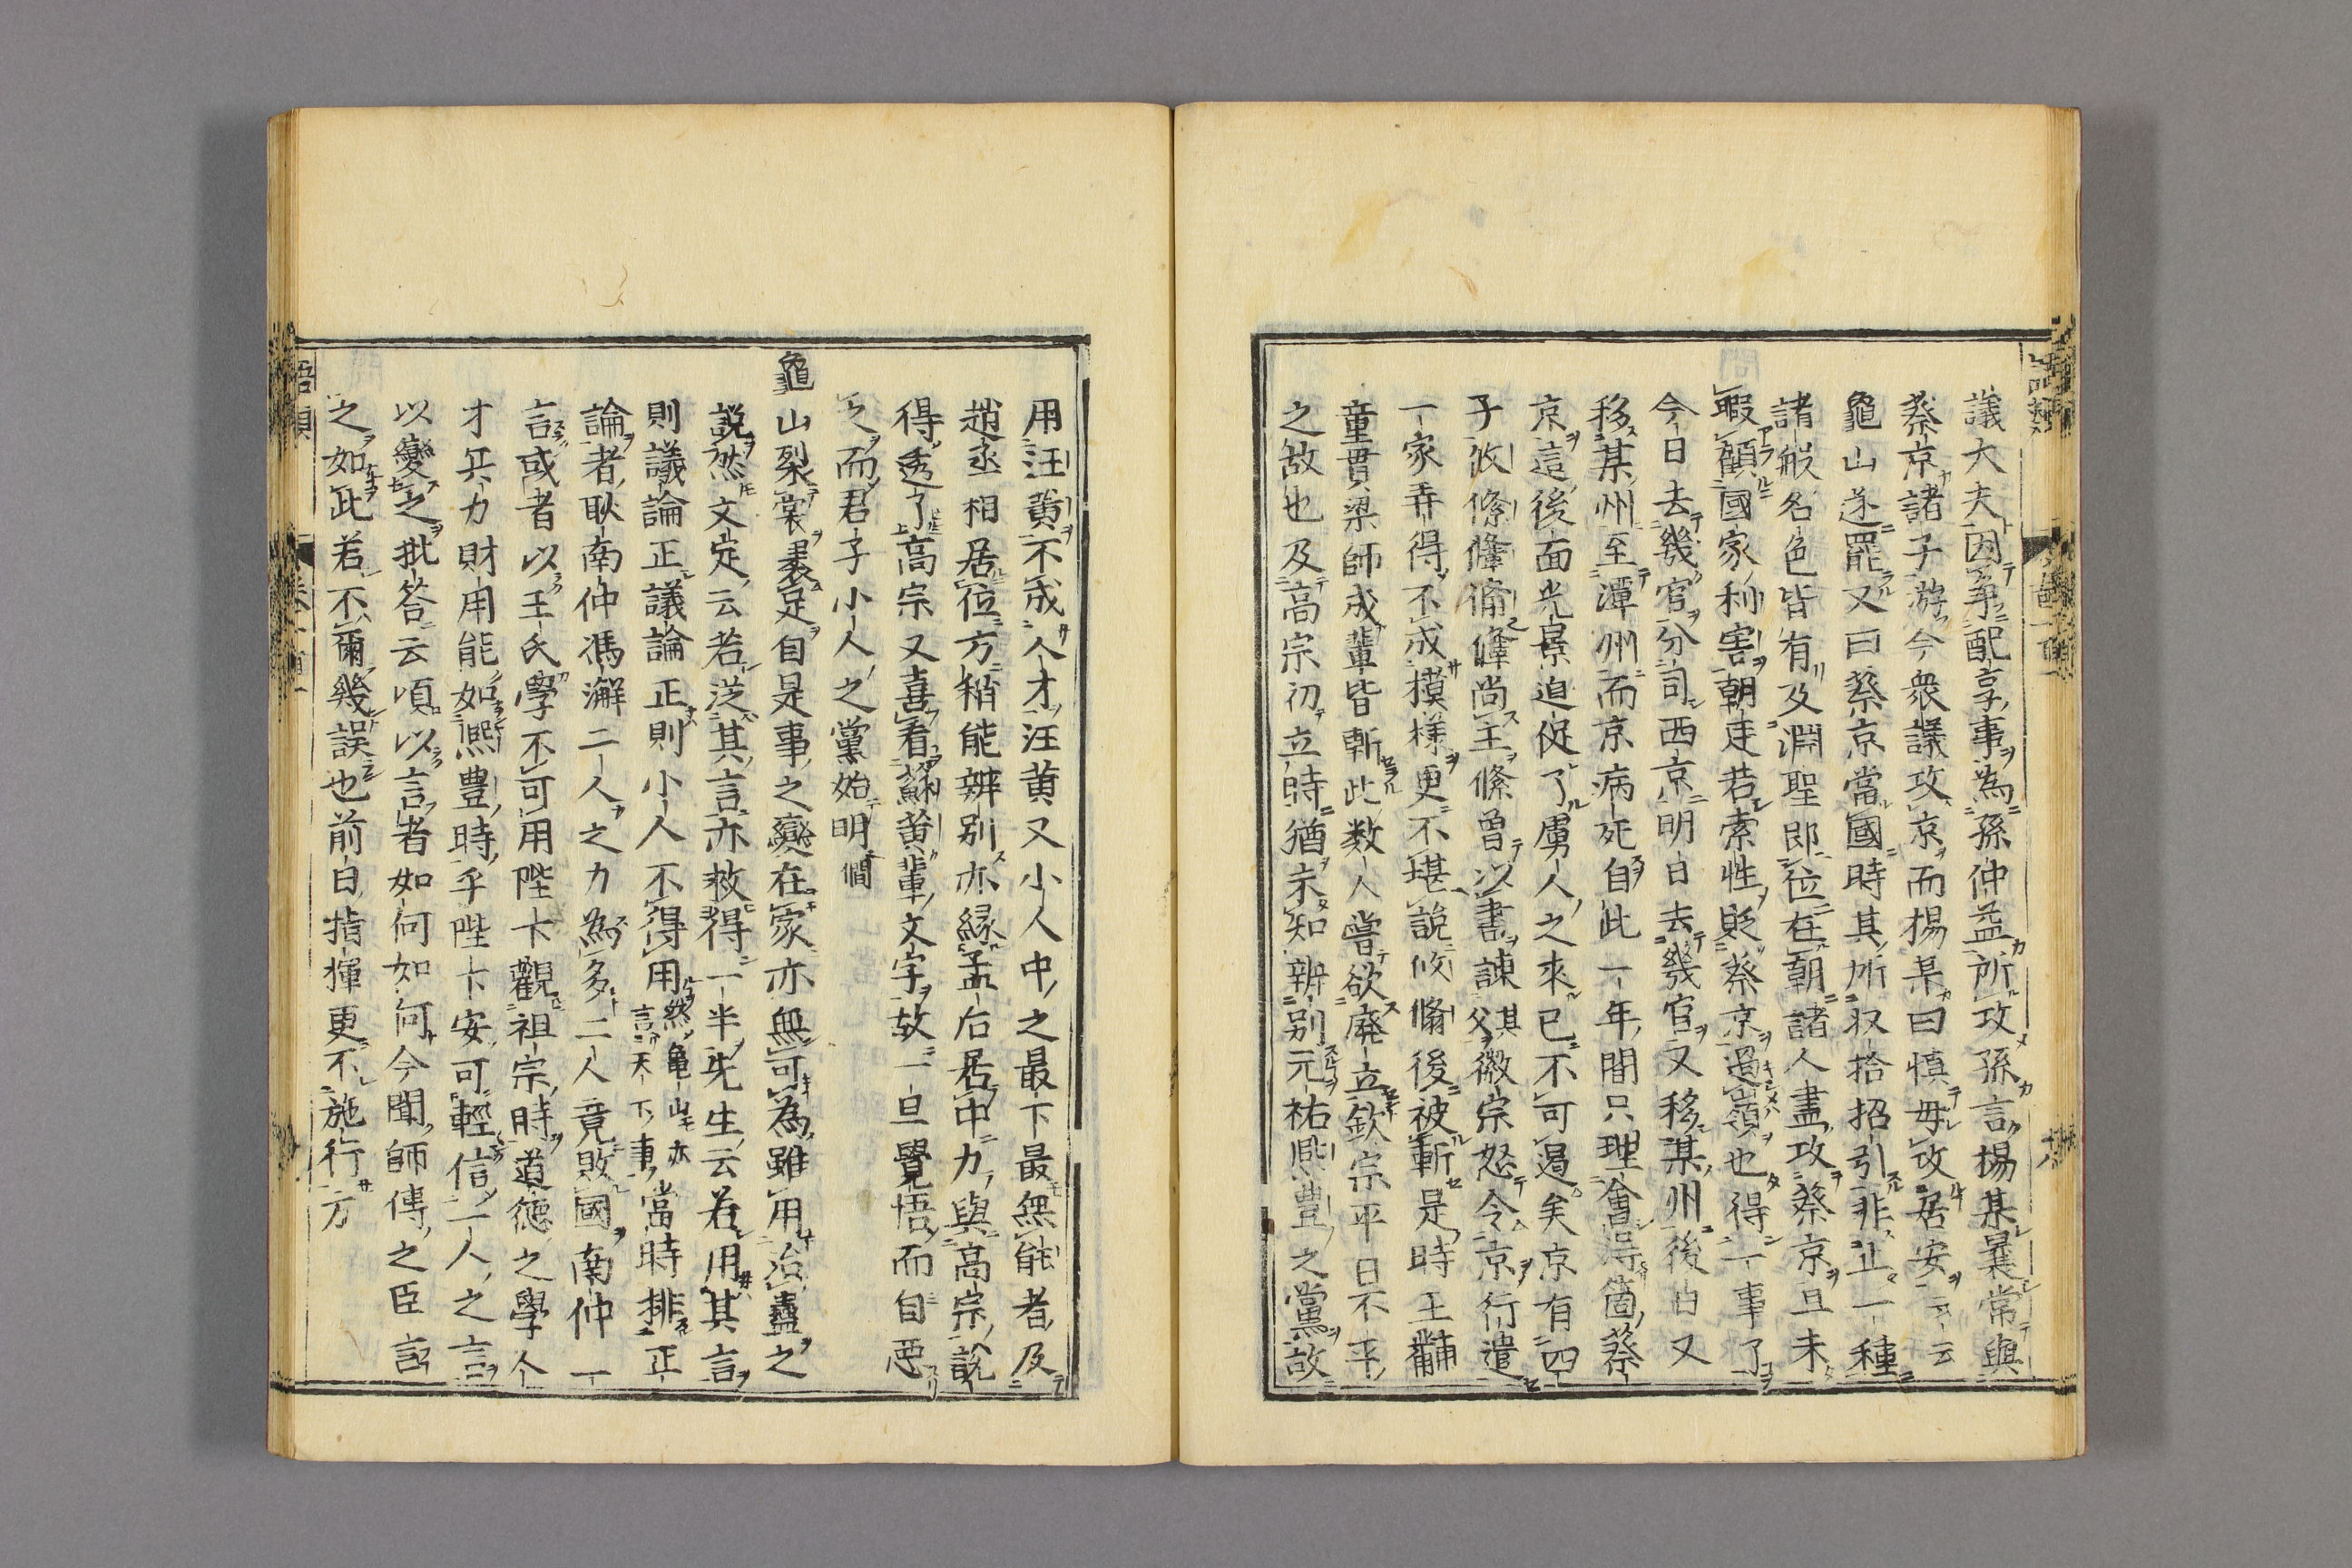 議大夫因爭配享事為孫仲益所攻孫言楊某曩常與
蔡京諸子游今衆議攻京而楊某曰慎毋攻居安云云
龜山遂罷又曰蔡京當國時其所収拾招引非止一種
諸般名色皆有及淵聖即位在朝諸人盡攻蔡京且未
暇顧國家利害朝走若索性貶蔡京過嶺也得一事了
今日去幾官分司西京明日去幾官又移某州後日又
移某州至潭州而京病死自此一年間只理會得箇蔡
京這後面光景迫促了虜人之來已不可遏矣京有四
子攸絛翛鞗尚主絛曾以書諌其父徽宗怒令京行遣
一家弄得不成模様更不堪說攸翛後被斬是時王黼
童貫梁師成輩皆斬此数人嘗欲廢立欽宗平日不平
之故也及高宗初立時猶未知辨別元祐熈豊之黨故
用汪黄不成人才汪黄又小人中之最下最無能者及
趙丞相居位方稍能辨別亦縁孟后居中力與高宗說
得透了高宗又喜看蘇黄輩文字故一旦覺悟而自惡
之而君子小人之黨始明僩
龜山裂裳裹足自是事之變在家亦無可為雖用治蠱之
説然文定云若從其言亦救得一半先生云若用其言
則議論正議論正則小人不得用然龜山亦言天下事當時排正
論者耿南仲馮澥二人之力為多二人竟敗國南仲上
言或者以王氏學不可用陛下觀祖宗時道德之學人
才兵力財用能如熈豊時乎陛下安可輕信一人之言
以變之批答云頃以言者如何如何今聞師傅之臣言
之如此若不爾幾誤也前日指揮更不施行方